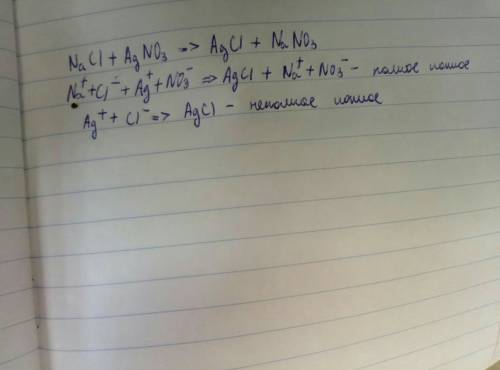 NaCl + AgNO₃ => AgCl + NaNO₃
Na⁺ + Cl⁻ + Ag⁺ + NO₃⁻ => AgCl + Na⁺ + NO₃⁻ - полное ионное
Ag⁺ + Cl⁻ => AgCl - неполное ионное